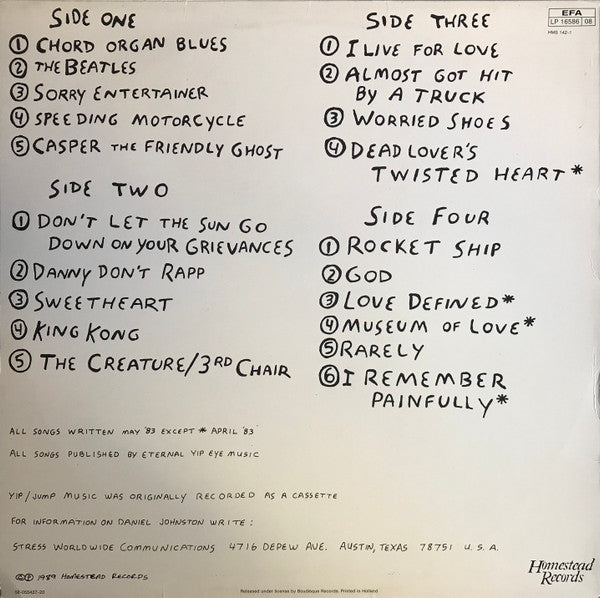 SIDE ONE
① CHORD ORGAN BLUES
② THE BEATLES
③ SORRY ENTERTAINER
④ SPEEDING MOTORCYCLE
⑤ CASPER THE FRIENDLY GHOST
SIDE TWO
① DON'T LET THE SUN GO
DOWN ON YOUR GRIEVANCES
② DANNY DON'T RAPP
③ SWEETHEART
④ KING KONG
⑤ THE CREATURE/3RD CHAIR
SIDE THREE
① I LIVE FOR LOVE
② ALMOST GOT HIT
BY A TRUCK
③ WORRIED SHOES
④ DEAD LOVER'S
TWISTED HEART*
SIDE FOUR
① ROCKET SHIP
② GOD
③ LOVE DEFINED*
④ MUSEUM OF LOVE*
⑤ RARELY
⑥ I REMEMBER
PAINFULLY*
EFA
LP 16586 08
HMS 142-1
ALL SONGS WRITTEN MAY '83 EXCEPT * APRIL '83
ALL SONGS PUBLISHED BY ETERNAL YIP EYE MUSIC
YIP/JUMP MUSIC WAS ORIGINALLY RECORDED AS A CASSETTE
FOR INFORMATION ON DANIEL JOHNSTON WRITE:
STRESS WORLDWIDE COMMUNICATIONS 4716 DEPEW AVE. AUSTIN, TEXAS 78751 U.S.A.
© ℗ 1989 HOMESTEAD RECORDS
Released under license by Boudisque Records. Printed in Holland
Homestead
Records